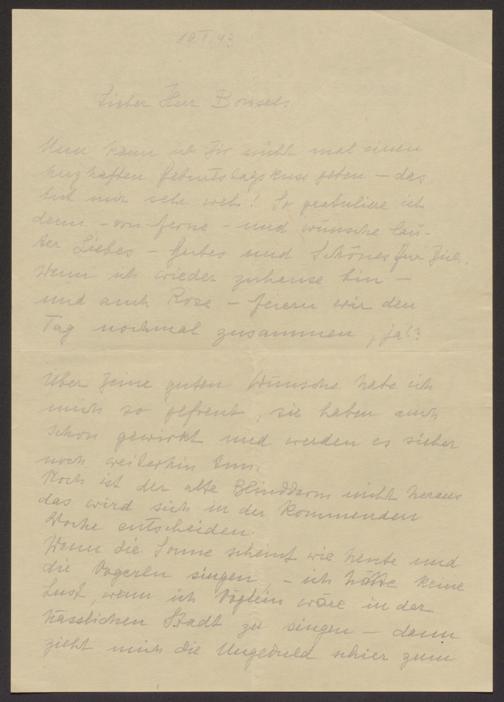 Lieber Herr Bonsels
Nun kann ich Dir nicht mal einen
herzhaften Geburtstagskuss geben – das
tut mir sehr weh! So gratuliere ich
denn – von ferne – und wünsche lau-
ter Liebes – Gutes und Schönes für Dich.
Wenn ich wieder zuhause bin –
und auch Rose – feiern wir den
Tag nochmal zusammen, ja?
Über Deine guten Wünsche habe ich
mich so gefreut, sie haben auch
schon gewirkt und werden es sicher
noch weiterhin tun.
Noch ist der alte Blinddarm nicht heraus
das wird sich in der kommenden
Woche entscheiden.
Wenn die Sonne scheint wie heute und
die Vögerln singen, – ich hätte keine
Lust, wenn ich Vöglein wäre in der
hässlichen Stadt zu singen – dann
zieht mich die Ungeduld schier zum